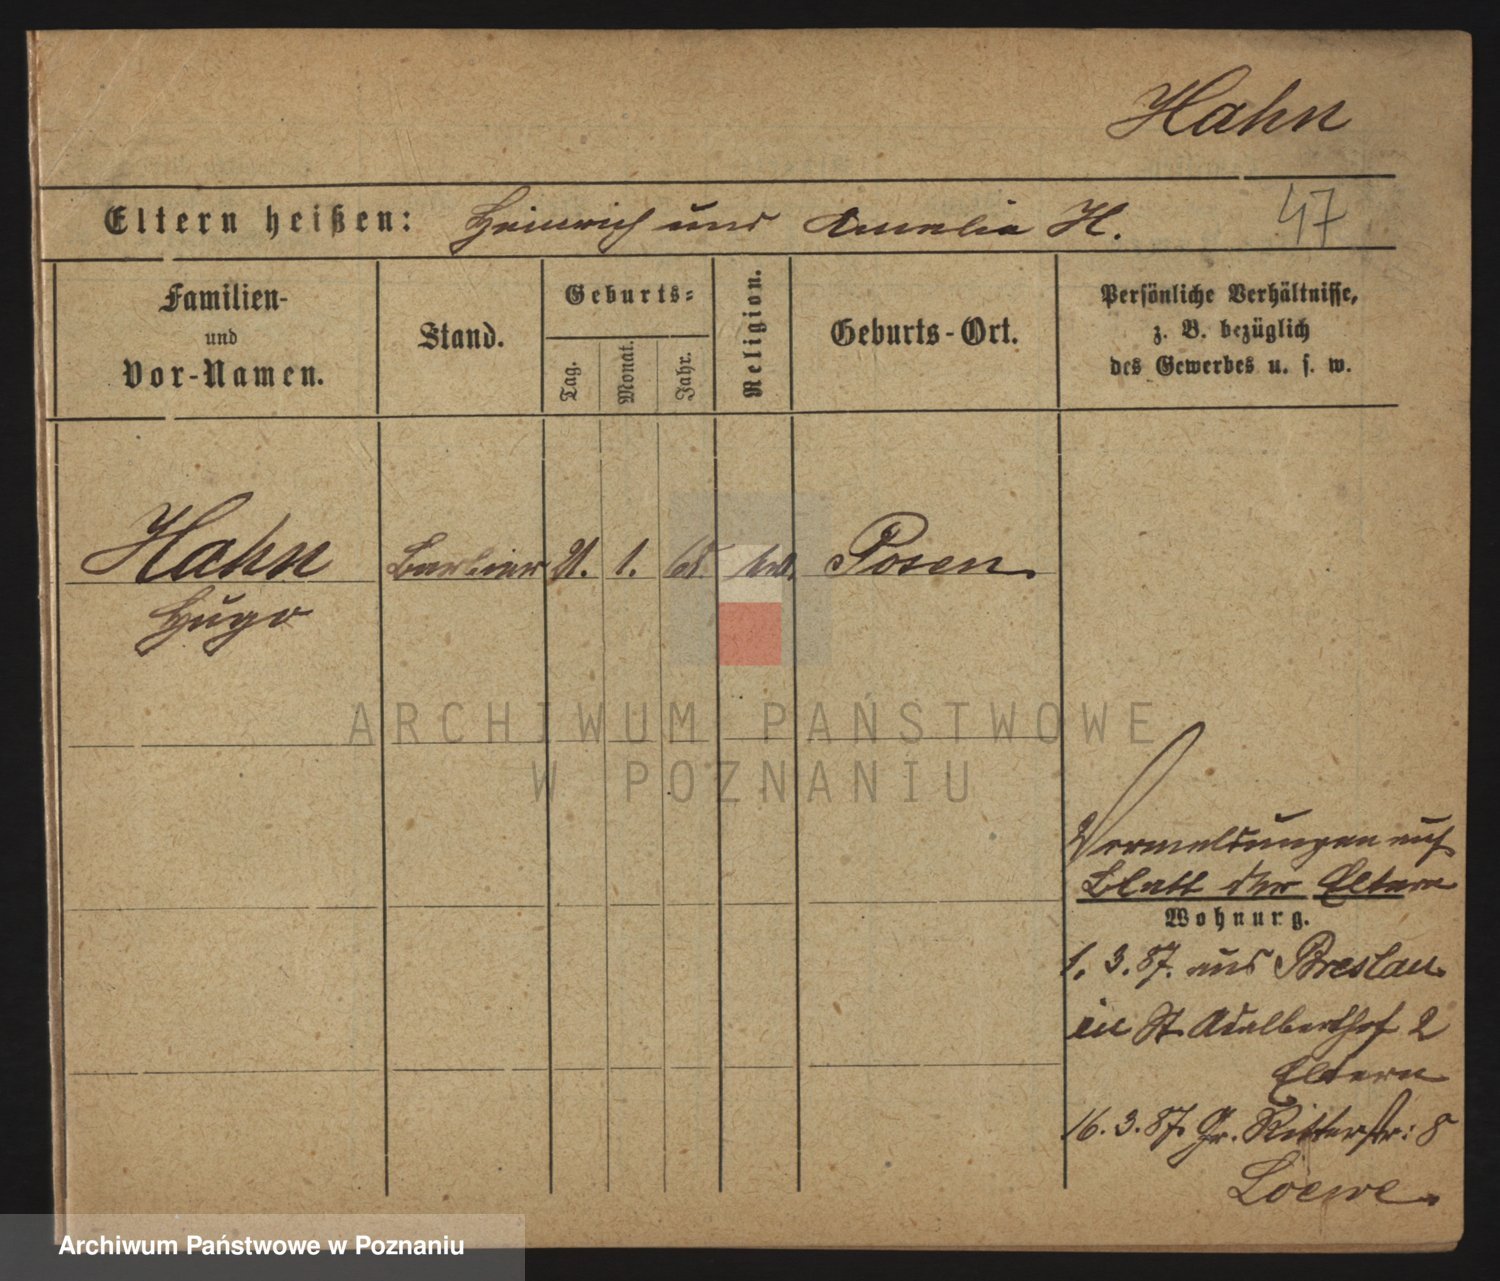 Hahn
Eltern heißen: Heinrich und Amalie H. 47
Familien-
und
Vor-Namen.
Stand.
Geburts-
Tag.
Monat.
Jahr.
Religion.
Geburts-Ort.
Persönliche Verhältnisse,
z. B. bezüglich
des Gewerbes u. s. w.
Hahn 21. 1. Posen.
Hugo
ARCHIWUM PAŃSTWOWE
W POZNANIU
Vermeldungen auf
Blatt der Eltern
Wohnung.
1. 3. 87. aus Breslau
in St Adalberthof 2
Eltern
16. 3. 87. Gr. Ritterstr: 8
Loewe.
Archiwum Państwowe w Poznaniu